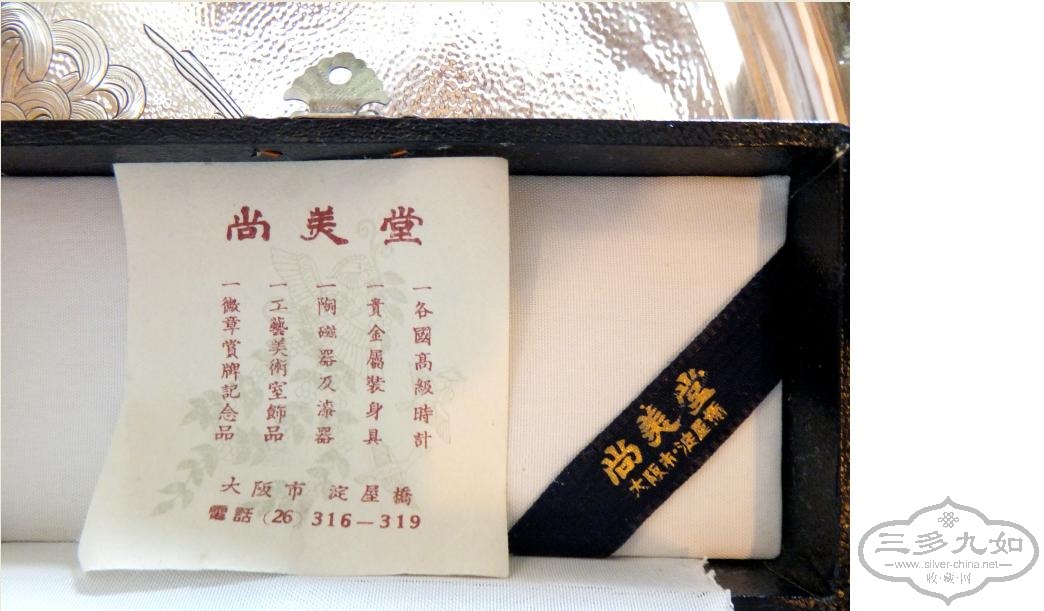 尚美堂
一各國高級時計
一貴金屬裝身具
一陶磁器及漆器
一工藝美術室飾品
一徽章賞牌記念品
大阪市 淀屋橋
電話(26)316—319
尚美堂
大阪市・淀屋橋
三多九如
www.silver-china.net
收·藏·网